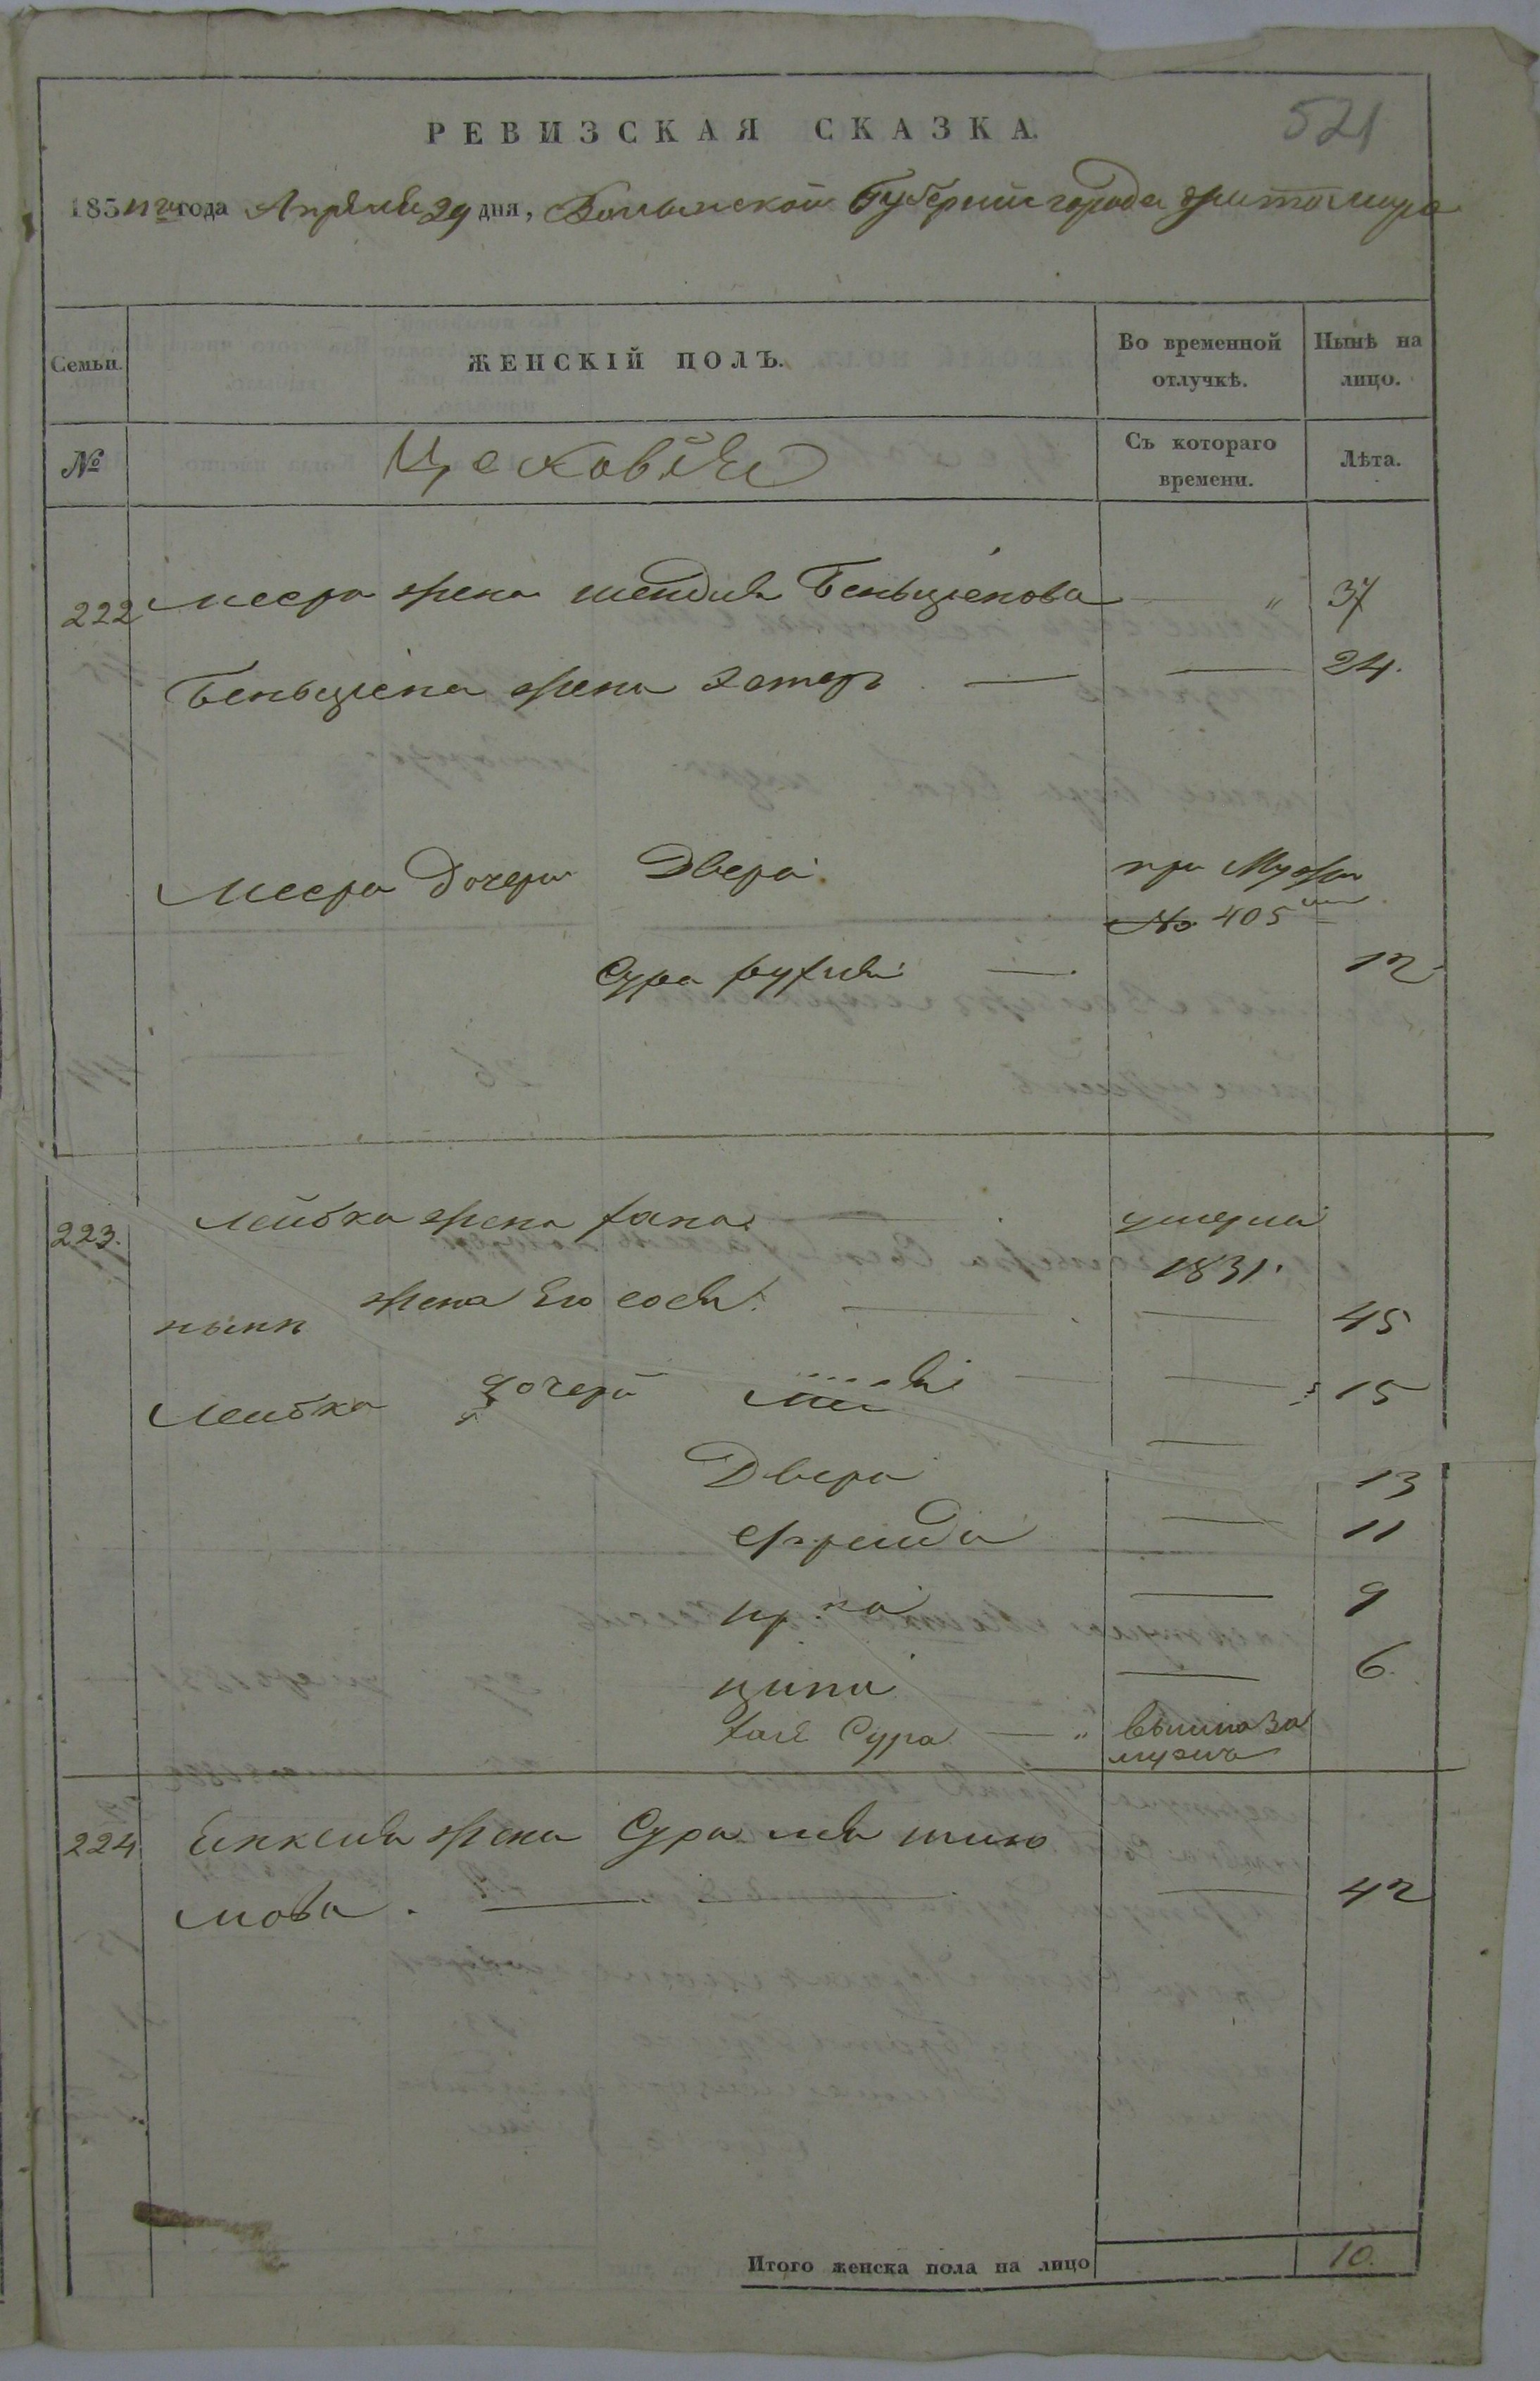 РЕВИЗСКАЯ СКАЗКА.
521
1834го года Апрѣля 29 дня, Волынской Губерніи города Житомира
Семьи.
ЖЕНСКІЙ ПОЛЪ.
Во временной отлучкѣ.
Нынѣ на лицо.
№
Цеховые
Съ котораго времени.
Лѣта.
222 Меера жена Шендля Беньціенова — " 37
Беньціена жена Эстеръ — — 24.
Меера дочери Двера при Мужѣ
№ 405
Сура Рухля — 12
223. Лейбка жена Хана — умерла
1831.
нынѣ жена Его Сося — — 45
Лейбка дочери — 15
Двера — 13
Фрейда — 11
— 9
Ципа — 6.
Хая Сура — " вышла за
мужъ
224 жена Сура Лея Шлио
мова. — — 42
Итого женска пола на лицо 10.